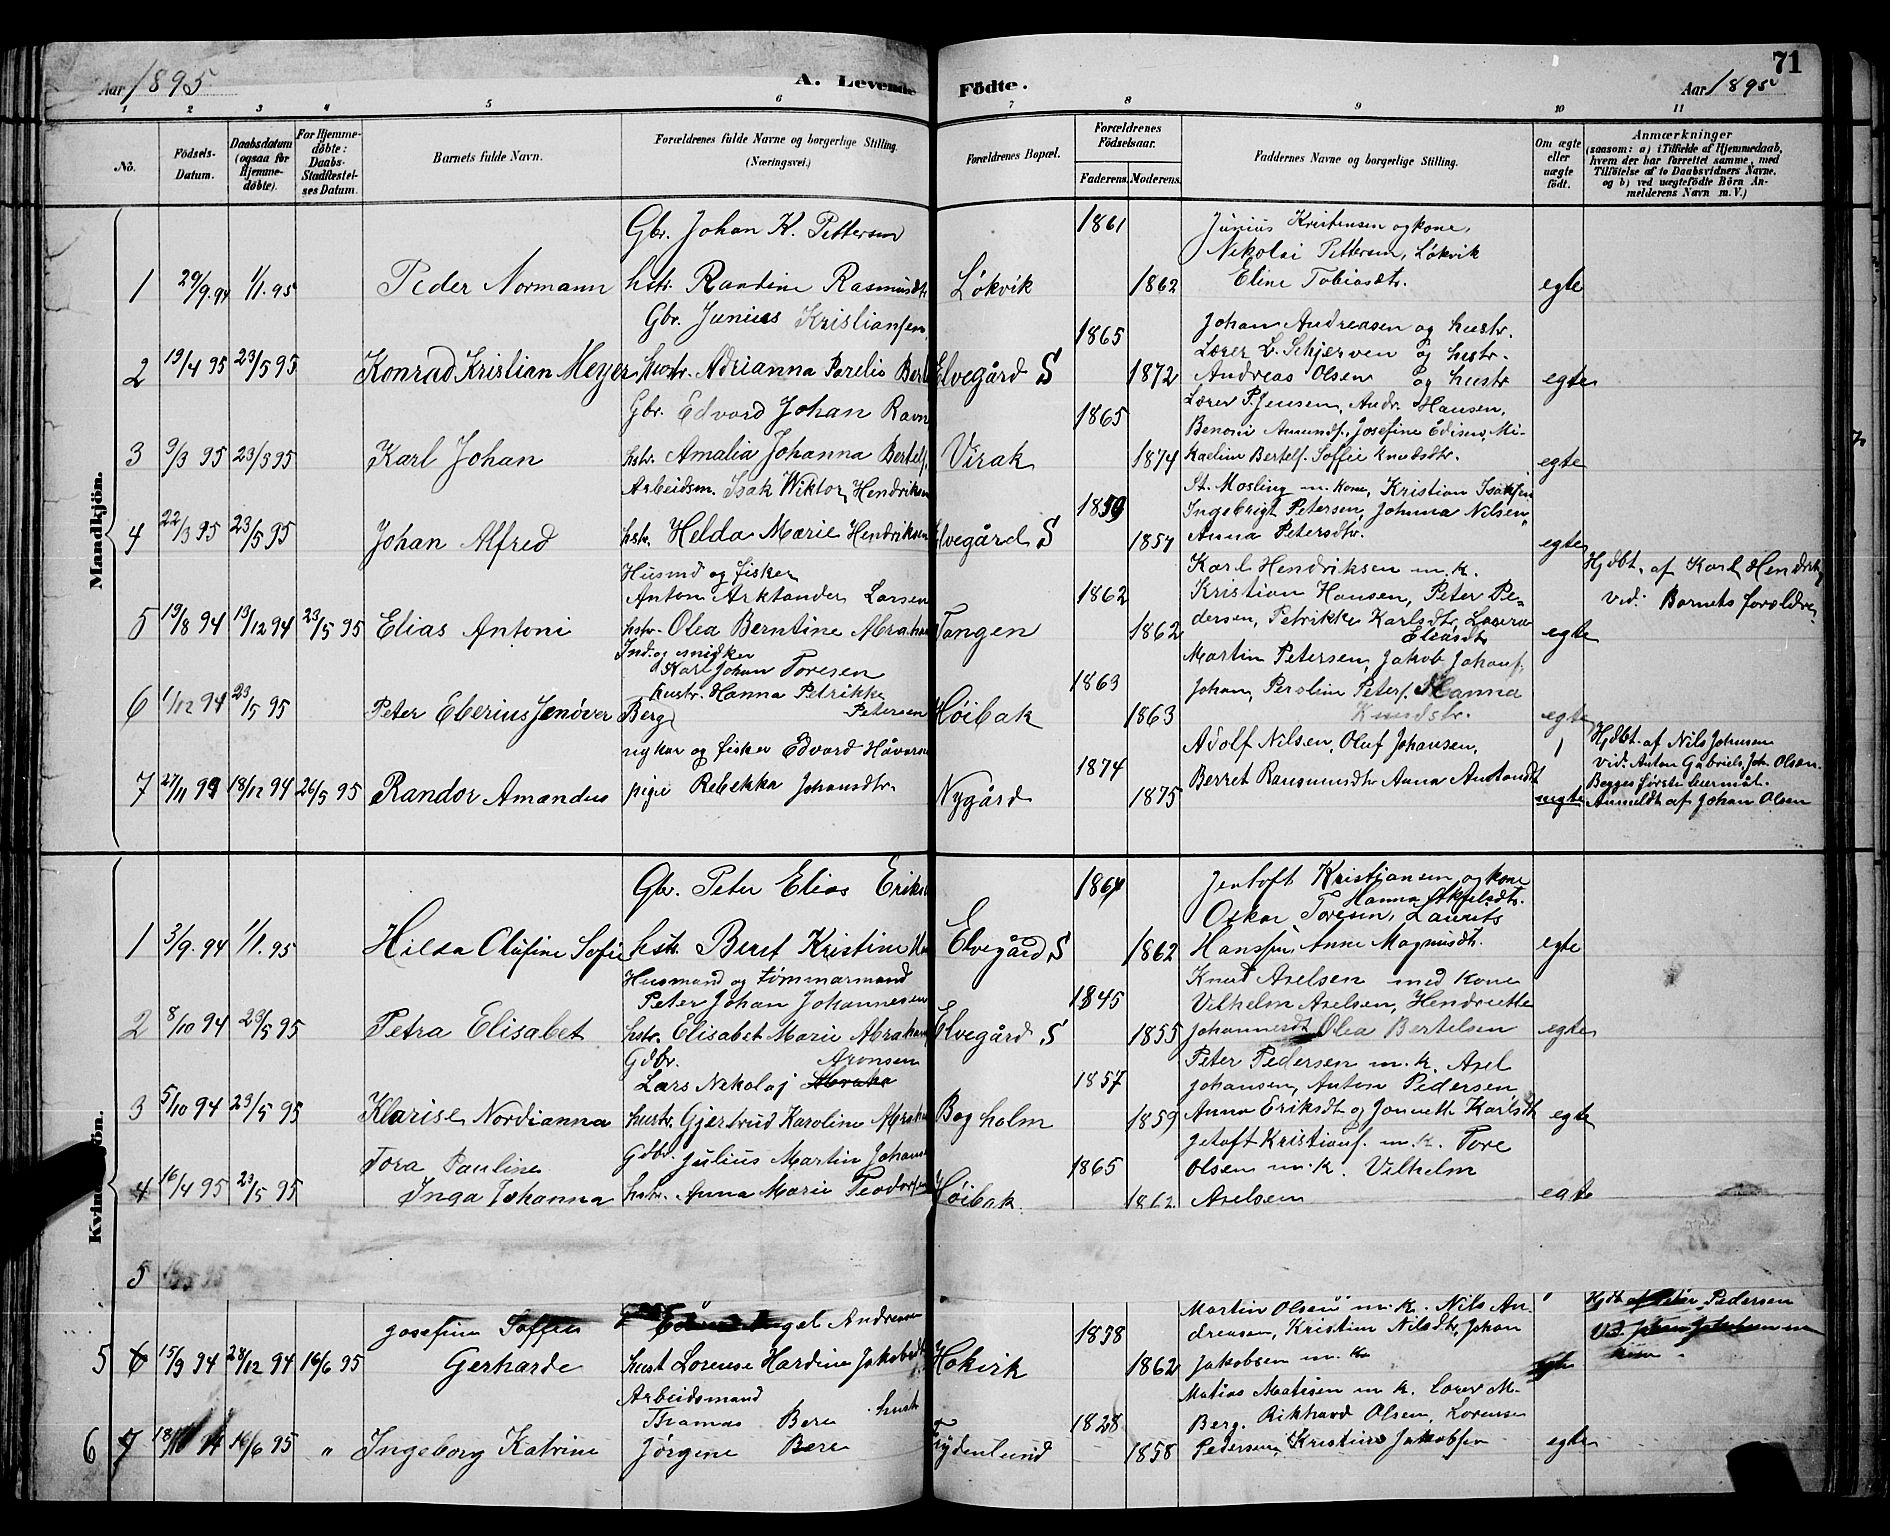 71
Aar 1895
A. Levende
Födte.
Aar 1895
1 2 3 4 5 6 7 8 9 10 11
No.
Födsels-
Datum.
Daabsdatum
(ogsaa for
Hjemme-
döbte).
For Hjemme-
döbte:
Daabs-
Stadfæstel-
ses Datum.
Barnets fulde Navn.
Forældrenes fulde Navne og borgerlige Stilling.
(Næringsvei.)
Forældrenes Bopæl.
Forældrenes
Födselsaar.
Faderens. Moderens.
Faddernes Navne og borgerlige Stilling.
Om ægte
eller
uægte
født.
Anmærkninger
(saasom: a) i Tilfælde af Hjemmedaab,
hvem der har forrettet samme, med
Tilföielse af to Daabsvidners Navne,
og b) ved uægtefödte Börn An-
melderens Navn m.V.)
Mandkjön.
Gbr. Johan K. Pettersen 1861 Junius Kristensen og kone,
Nikolai Pettersen, Lökvik
1 29/9.94 1/1.95 Peder Normann hstr. Randine Rasmusdtr Lökvik 1862 Eline Tobiasdtr. egte
Gbr. Junius Kristiansen, 1865 Johan Andreasen og hustr.
Lærer L. Schjerven og hustr.
2 19/4 95 23/5 95 Konrad Kristian Meyer hustr. Adrianna Parelia Bert Elvegård S 1872 Andreas Olsen og hustr egte
Gbr. Edvard Johan Ravn 1865 Lærer P. Jensen, Andr. Hansen,
Benoni Amunds. Josefine Edisen, Mi-
3 9/3 95 23/5 95 Karl Johan hstr. Amalia Johanna Bertels. Virak 1874 kaeline Bertels. Soffie Knudsdtr. egte
Arbeidsm. Isak Wiktor Hendriksen 1859 St. Mosling m. kone, Kristian Isaksen
Ingebrigt Petersen, Johnna Nilsen
4 22/3 95 23/5 95 Johan Alfred hstr. Helda Marie Hendriksen Elvegård S 1857 Anna Petersdtr. egte
Husmd og fisker Karl Hendriksen m. k.
Anton Arktander Larsen 1862 Kristian Hansen, Peter Pe-
Hjdbt. af Karl Hendrik
vid. Barnets foroldre
5 19/8 94 13/12 94 23/5 95 Elias Antoni hstr. Olea Berntine Abraham Tangen 1862 dersen, Petrikke Karlsdtr, Lovera
Eliasdtr egte
Ind. og snidker Martin Petersen, Jakob Johans.
Karl Johan Toresen 1863
hustr. Hanna Petrikke Johan, Peroline Peters. Hanna
6 1/12 94 23/5 95 Peter Eberius Jenöver Berg Petersen Höibak 1863 Knudstr. egte
ugkar og fisker Edvard Håvorsen 1874 Adolf Nilsen, Oluf Johansen,
7 27/11 94 18/12 94 26/5 95 Randor Amandus pige Rebekka Johansdtr. Nygård 1875 Berret Rausmundtr Anna Antondtr uegte
Hjdbt. af Nils Johnsen
vid. Anton Gabriels, Joh. Olsen.
Begges første leiermål.
Anmeldt af Johan Olsen
Kvindekjön.
Gbr. Peter Elias Eriks 1864 Jentoft Kristjansen og kone
Hanna Akselsdtr.
Oskar Toresen, Laurits
1 3/9.94 1/1.95 Hilda Olufine Sofie hstr. Beret Kristine Elvegård S 1862 Hanssen, Anne Magnusdtr. egte
Husmand og tømmarmand Knud Axelsen med kone
Peter Johan Johannesen 1845 Vilhelm Axelsen, Hendriette
2 8/10 94 23/5 95 Petra Elisabet hstr. Elisabet Marie Abraham Elvegård S 1855 Johannesdt Olea Bertelsen egte
Gdbr. Aronsen Peter Pedersen m. k. Axel
Lars Nekolaj 1857 Johansen, Anton Pedersen
3 5/10 94 23/5 95 Klarise Nordianna hustr. Gjertrud Karoline Abraham Bogholm 1859 Anna Eriksdtr og Jonnette Karlsdt egte
Gdbr. Julius Martin Johans 1865 Jetoft Kristians. m. k. Tore
Tora Pauline Olsen m. k. Vilhelm
4 16/4 95 23/5 95 Inga Johanna hstr. Anna Marie Teodors Höibak 1862 Axelsen egte
5
Josefine Soffie Andreasen 1858 Martin Olsen m. k. Nils An-
dreasen, Kristine Nilsdtr, Johan
Hjdt af Peter Pedersen
5 6 15/9 94 28/12 94 16/6 95 Gerharde hust Lorense Hardine Jakobsdt Hokirk 1862 Jakobsen m. k
Arbeidsmand Matias Matisen m k. Lærer M.
Thomas Berg hustr 1828 Berg. Rikhard Olsen, Lorense
6 7 18/10 94 16/6 95 " Ingeborg Katrine Jörgine Berg Frydenlund 1858 Pedersen, Kristine Jakobsen egte